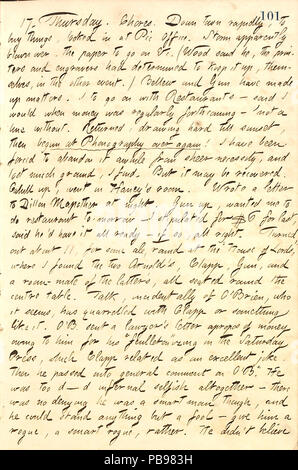 101
17. Thursday. Chores. Down town rapidly, to
buy things, looked in at Pic office. Storm apparently
blown over, the paper to go on &c. (Wood said he, the prin-
ters and engravers had determined to keep it up, them-
selves, in the other event.) Bellew and Gun have made
up matters. I to go on with Restaurants — said I
would when money was regularly forthcoming — not a
line without. Returned, drawing hard till sunset
then began at Phonography over again! I have been
forced to abandon it awhile from sheer necessity, and
lost much ground, I find. But it may be recovered.
Cahill up, went in Haney's room. Wrote a letter
to Dillon Mapother at night. Gun up, wanted me to
do restaurant to-morrow — I stipulated for $6 for last
said he'd have it all ready — if so, all right. Turned
out about 11, for some ale, round at the House of Lords,
where I found the two Arnold's, Clapp, Gun, and
a room-mate of the latters, all seated round the
centre table. Talk, incidentally of O'Brien, who
it seems, has quarrelled with Clapp or something
like it. O'B. sent a lawyer's letter apropos of money
owing to him for his in the Saturday
Press, which Clapp related as an excellent joke
then he passed into general comment on O'B. He
was too d—d infernal selfish altogether — there
was no denying he was a smart man though, and
he could stand anything but a fool — give him a
rogue, a smart rogue, rather. He didn't believe
alamy
Image ID: PB983H
www.alamy.com